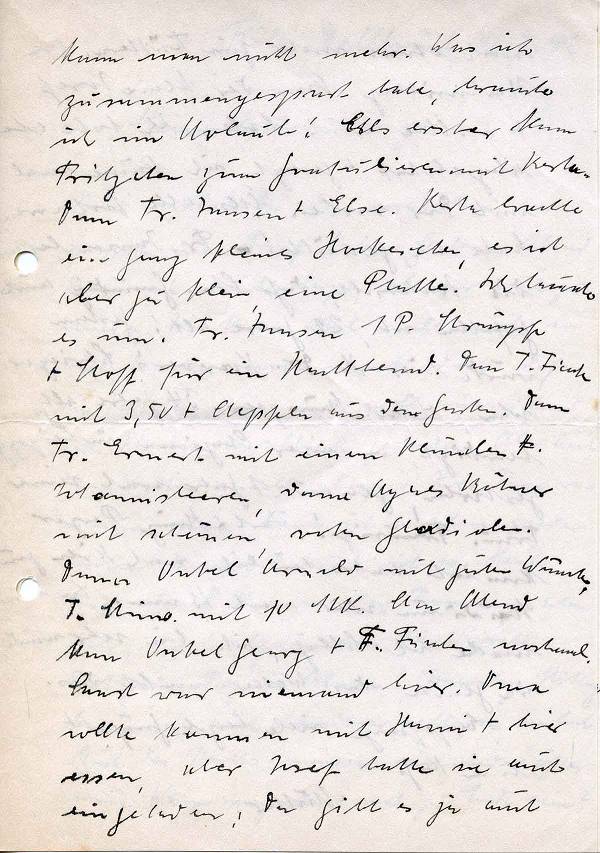 kann man nicht mehr. Was ich
zusammengespart habe, brauche
ich im Urlaub! Als erster kam
Fritzchen zum Gratulieren mit Kerta.
Dann Fr. Jansen + Else. Kerta brachte
ein ganz kleines Höckerchen, es ist
aber zu klein, eine Platte. Ich tausche
es um. Fr. Jansen 1 P. Strümpfe
+ Stoff für ein Nachthemd. Dann T. Finchen
mit 3,50 + Aeppeln aus dem Garten. Dann
Fr. Ernert mit einem
Johannisbeeren, dann Agnes
mit schönen, roten Gladiolen.
Dann Onkel Arnold mit guten Wünschen,
T. Mina mit 10 MK. Am Abend
kam Onkel Georg + F. Finchen nochmal.
Sonst war niemand hier. Oma
sollte kommen mit Hanni + hier
essen, aber Josef hatte sie auch
eingeladen; da gibt es ja auch